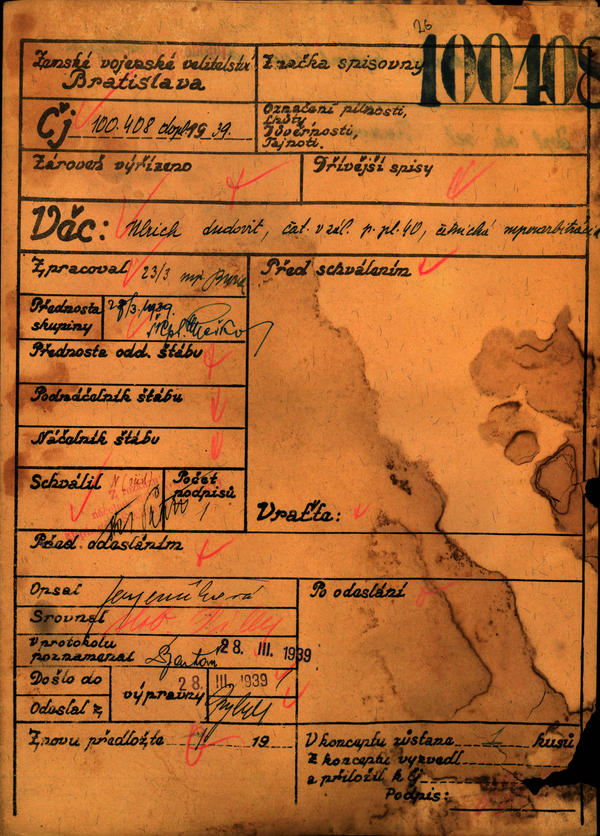 26
Zemské vojenské velitelství
Bratislava
Značka spisovny
100408
Čj 100.408 dopl. 19 39.
Označení pilnosti,
Lhůty
Důvěrnosti,
Tajnoti.
Zároveň vyřízeno
Dřívější spisy
Věc: Ulrich Ludovit, čat. v zál. p. pl. 40,
Zpracoval 23/3.
Před schválením
Přednosta
skupiny
28/3.1939.
Přednosta odd. štábu
Podnáčelník štábu
Náčelník štábu
Schválil
Počet
podpisů
1
Vraťte:
Před. odesláním
Opsal
Po odeslání
Srovnal
V protokolu
poznamenal
28. III. 1939
Došlo do
výpravny
28. III. 1939
Odeslal z
Znovu předložte 19
V konceptu zůstane 1 kusů
Z konceptu vyzvedl
a přiložil k čj
Podpis: